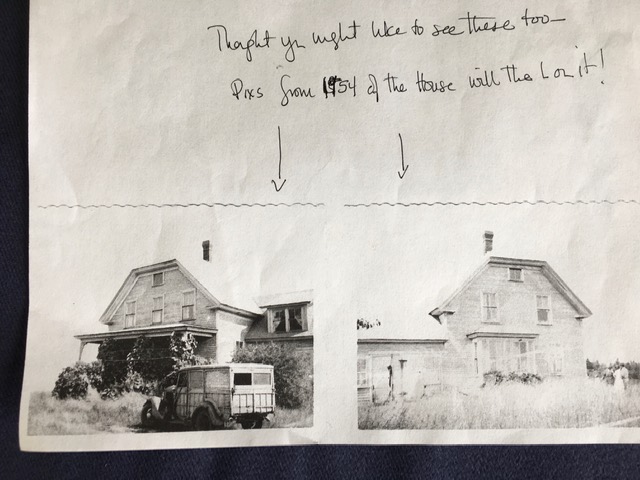 Thought you might like to see these too—
Pixs from 1954 of the House with the L on it!